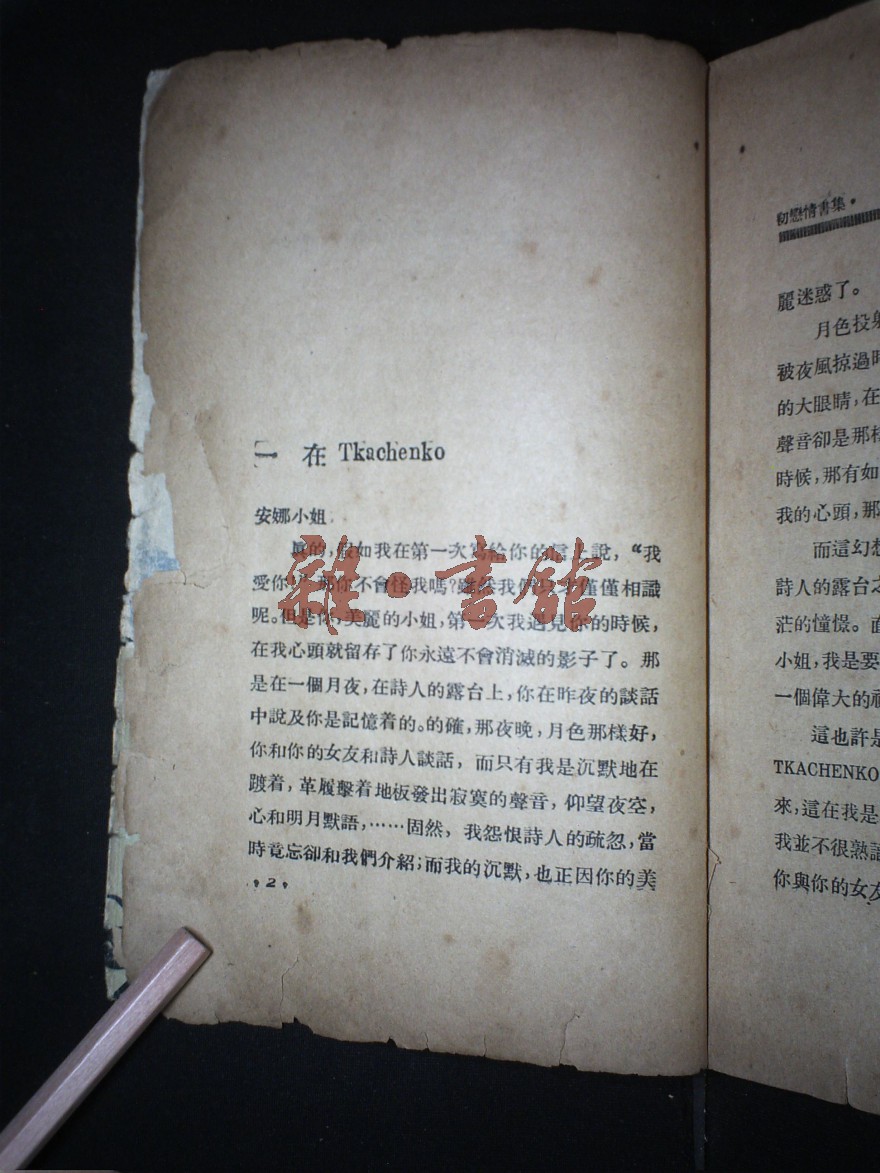 一 在 Tkachenko
安娜小姐
眞的,假如我在第一次寫給你的信上說,“我
愛你”,那你不會怪我嗎?雖然我們只才僅僅相識
呢。但是你,美麗的小姐,第一次我遇見你的時候,
在我心頭就留存了你永遠不會消滅的影子了。那
是在一個月夜,在詩人的露台上,你在昨夜的談話
中說及你是記憶着的。的確,那夜晚,月色那樣好,
你和你的女友和詩人談話,而只有我是沉默地在
踱着,革履擊着地板發出寂寞的聲音,仰望夜空,
心和明月默語,……固然,我怨恨詩人的疏忽,當
時竟忘卻和我們介紹;而我的沉默,也正因你的美
2
雜·書館
初戀情書集·
麗迷惑了。
月色投射
被夜風掠過時
的大眼睛,在
聲音卻是那樣
時候,那有如
我的心頭,那
而這幻想
詩人的露台之
茫的憧憬。直
小姐,我是要
一個偉大的
這也許是
TKACHENKO
來,這在我是
我並不很熟
你與你的女友